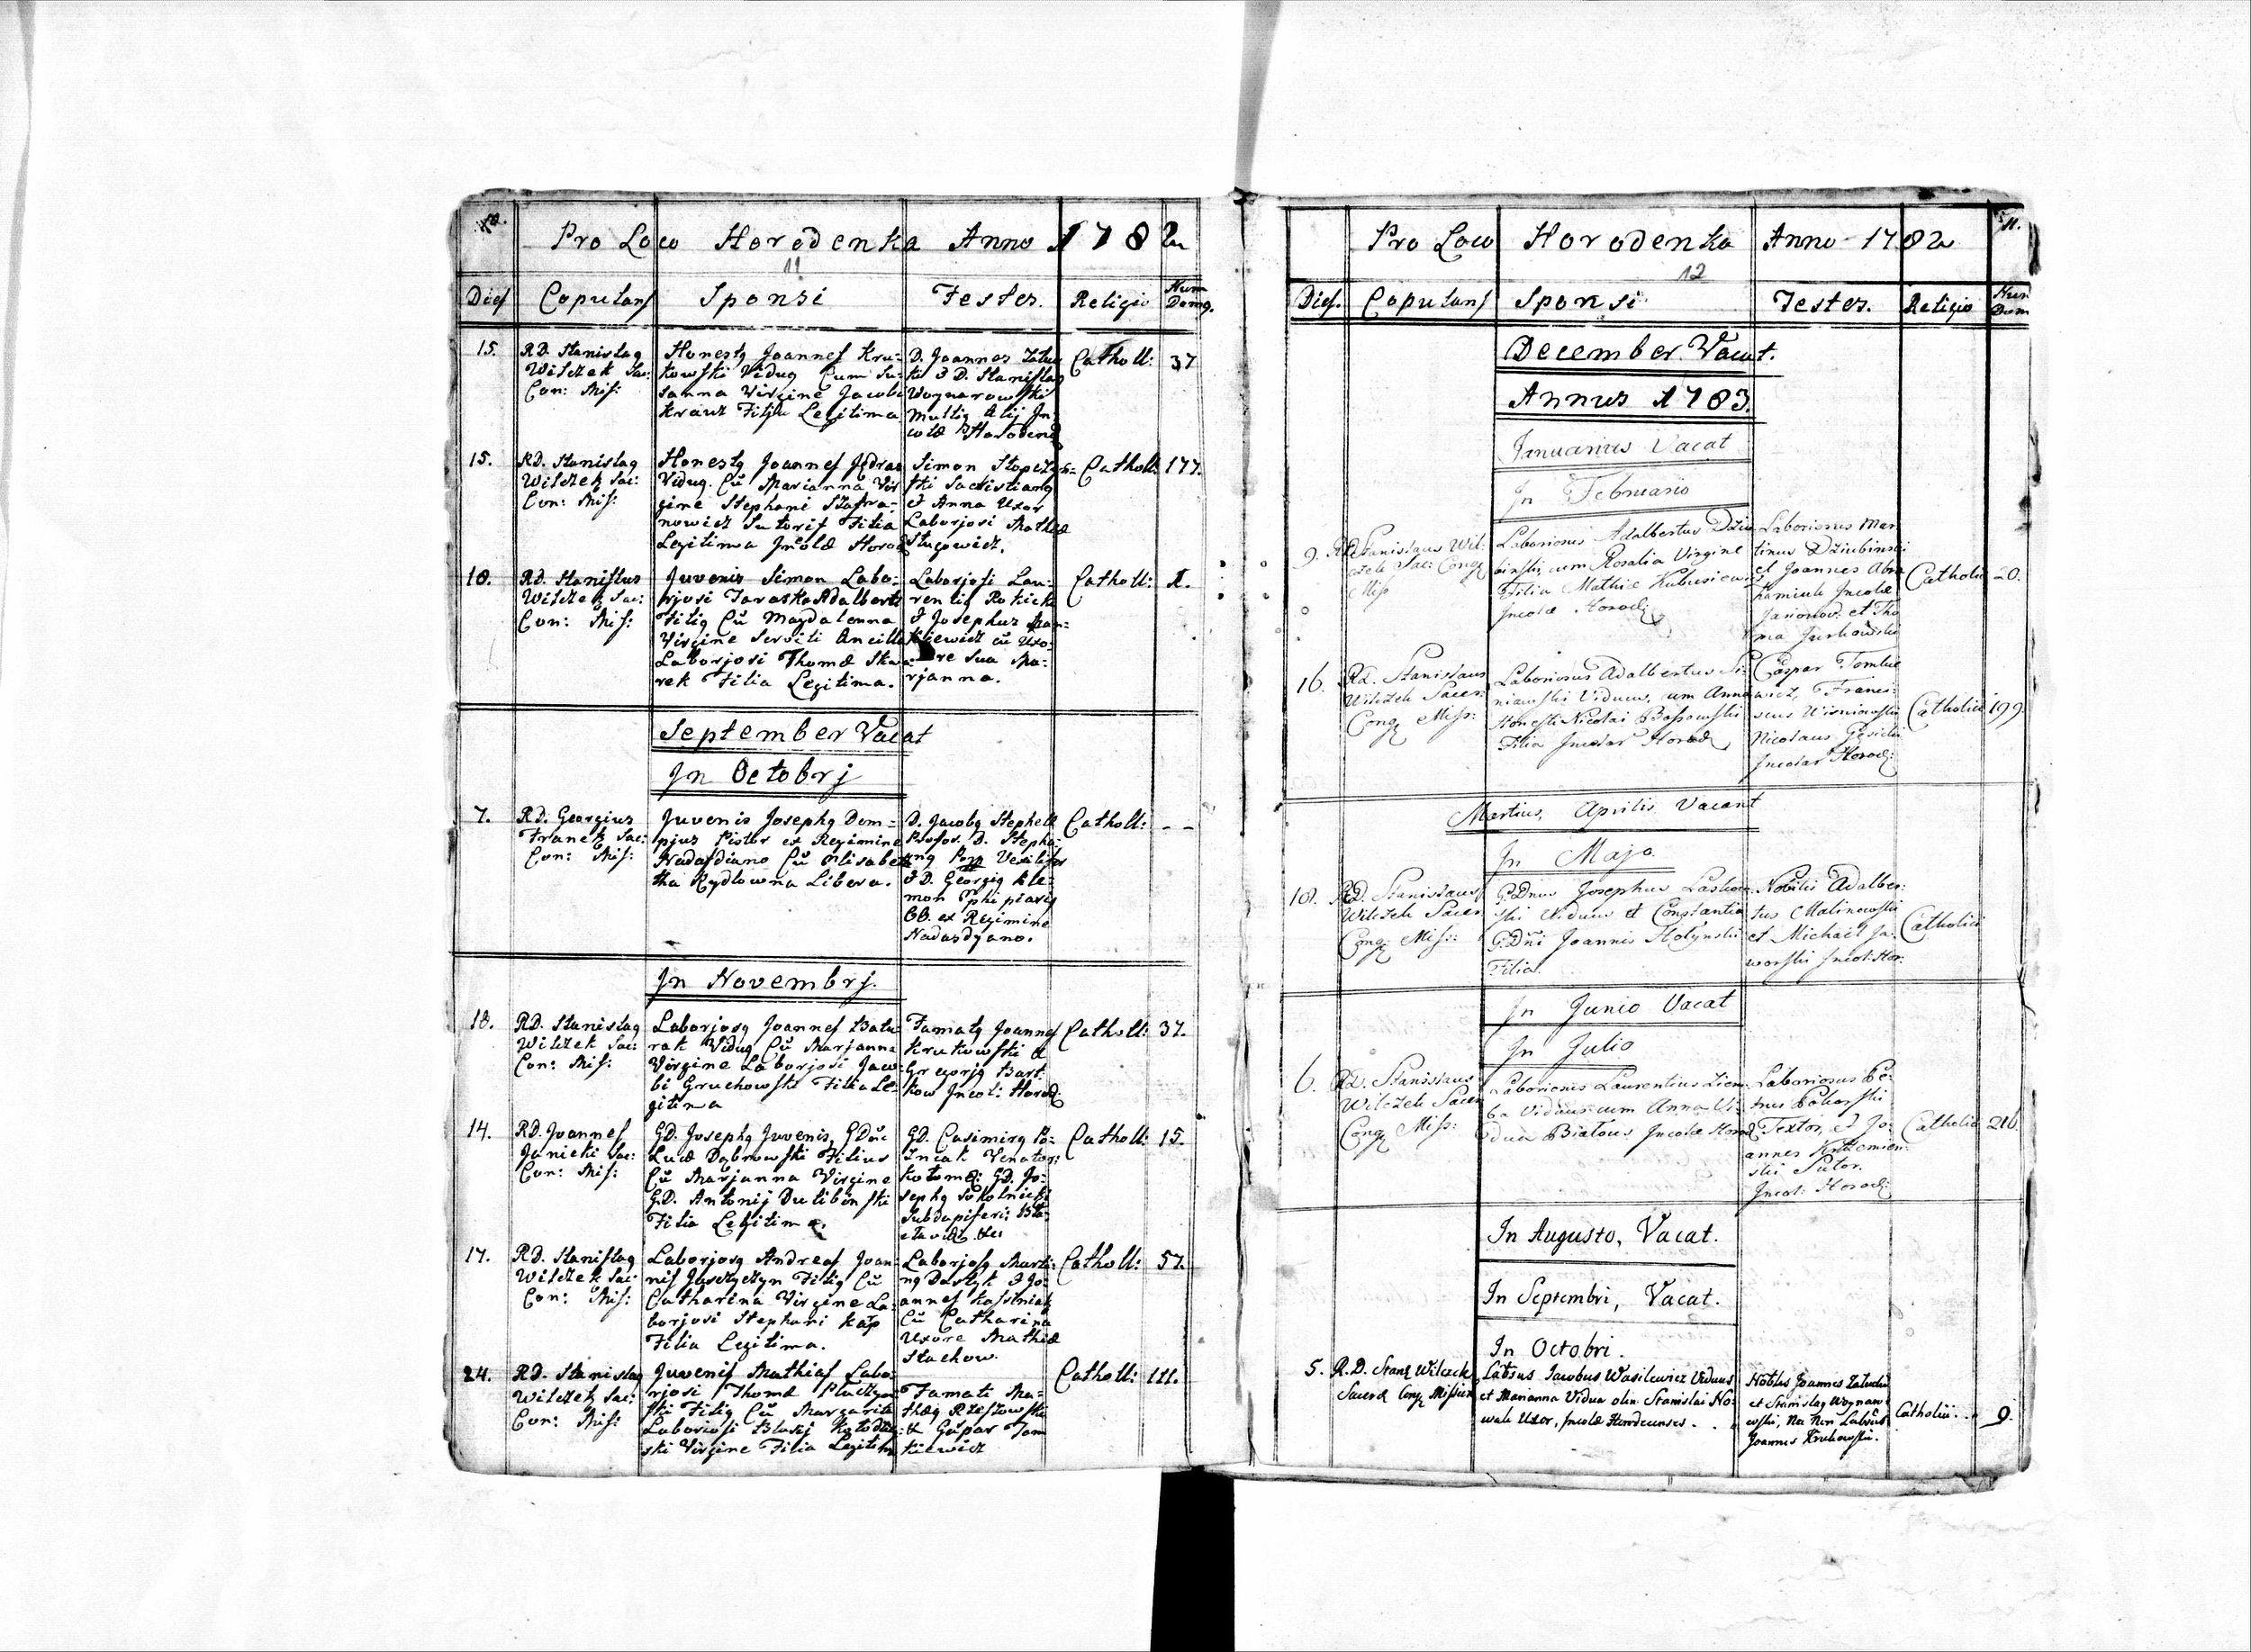 10.
Pro Loco Horodenka Anno 1782
11
Dies Copulans Sponsi Testes. Religio Num Domq.
15. RD. Stanislaq Wilczek Sac: Con: Mis:
Honestq Joannes Kru=
kowski Viduq Cum Su=
sanna Virgine Jacobi
Krausz Filia Legitima
D. Joannes Zatu
ki & D. Stanislaq
Woynarowski
multiq Alij In
colæ Horodend
Catholi: 37
15. RD. Stanislaq
Wilczek Sac:
Con: Mis:
Honestq Joannes Jędras
Viduq. Cũ Marianna Vir
gine Stephani Szafra=
nowicz Sutoris Filia
Legitima Incolæ Horod
Simon Stopczy=
ski Sacristianq
et Anna Uxor
Laborjosi Mathiæ
Stugowicz.
Catholi: 177.
18. RD. Stanislus
Wilczek Sac:
Con: Mis:
Juvenis Simon Labo=
rjosi Jaraska Adalberti
Filiq Cũ Magdalenna
Virgine Serviti Ancilla
Laborjosi Thomæ Skwa=
rek Filia Legitima.
Laborjosi Lau=
rentiq Rokick
& Josephus
kiewicz cũ Uxo=
re sua Ma=
rjanna.
Catholi: 1.
September Vacat
In Octobrj
7. RD. Georgius
Franek Sac:
Con: Mis:
Juvenis Josephq Dom=
pjus Pistor ex Regimine
Nadasdiano Cũ Elisabe
tha Rydlowna Libera.
D. Jacobq Stephell
Profos. D. Stepha
nq Pop Vexilifer
& D. Georgiq Kle=
mon
ex Regimine
Nadasdyano.
Catholi: - -
In Novembrj.
18. RD. Stanislaq
Wilczek Sac:
Con: Mis:
Laborjosq Joannes Batu
rak Viduq Cũ Marjanna
Virgine Laborjosi Jaco=
bi Gruchowski Filia Le=
gitima
Famatq Joannes
Krukowski &
Gregorjq Bart=
kow Incol: Horod:
Catholi: 37.
14. RD. Joannes
Janicki Sac:
Con: Mis:
GD. Josephq Juvenis, GDni
Lucæ Dąbrowski Filius
Cũ Marjanna Virgine
GD. Antonij Dulibinski
Filia Legitima.
GD. Casimirq Po=
zniak Venator:
Kołomę: GD. Jo=
sephq Sokolnicki
Subdapiferi:
Catholi: 15.
17. RD. Stanislaq
Wilczek Sac:
Con: Mis:
Laborjosq Andreas Joan=
nis Juszczyszyn Filiq Cũ
Catharina Virgine La=
borjosi Stephani Kap
Filia Legitima.
Laborjosq Marti=
nq Dastyk & Jo=
annes Kosstniak
Cũ Catharina
Uxore Mathiæ
Stachow.
Catholi: 57.
24. RD. Stanislaq
Wilczek Sac:
Con: Mis:
Juvenis Mathias Labo=
rjosi Thomæ
ski Filiq Cũ Margarita
Laboriosi Blasij Kołodzie
ski Virgine Filia Legitim
Famati Ma=
thæq Rzeszowski
& Gaspar Tom
kiewicz
Catholi: 111.
11.
Pro Loco Horodenka Anno 1782
12
Dies. Copulans Sponsi Testes. Religio Num Dom
December Vacat.
Annus 1783.
Januarius Vacat
In Februario
9. RD Stanislaus Wil=
czek Sac: Cong
Miss
Laboriosus Adalbertus Dziu
binski, cum Rosalia Virgine
Filia Mathiæ Kubusiewicz
Incolæ Horod:
Laboriosus Mar
tinus Dziubinski
et Joannes Abra
hamiuk Incolæ
Jasionov. et Tho
ma Jurkowski
Catholi 20.
16. Rd. Stanislaus
Wilczek Sacer:
Cong Miss:
Laboriosus Adalbertus Si=
niawski Viduus, cum Anna
Honesti Nicolai Bossowski
Filia Incolar Horod,
Caspar Tomkie
wicz, Franci=
scus Wisniowski
Nicolaus Gęsicki
Incolar Horod:
Catholici 199.
Martius, Aprilis Vacant
In Majo.
18. RD. Stanislaus
Wilczek Sacer
Cong Miss:
G.Dnus Josephus Laskow=
ski Viduus et Constantia
G.Dni Joannis Hołynski
Filia.
Nobilis Adalber=
tus Malinowski
et Michael Ja=
worski Incol: Hor:
Catholici
In Junio Vacat
In Julio
6. RD. Stanislaus
Wilczek Sacer
Cong Miss:
Laboriosus Laurentius Ziem=
ba Viduus cum Anna Vi=
dua Białous Incolæ Horod
Laboriosus Pe=
trus
Textor, et Jo=
annes Krzemien=
ski Sutor.
Incol: Horod:
Catholici 216.
In Augusto, Vacat.
In Septembri, Vacat.
In Octobri.
5. R.D. Stan Wilczek
Sacerd Cong Mission
Labsus Iacobus Wasilewicz Viduus
et Marianna Vidua olim Stanislai No=
wak Uxor, Incolæ Hordenses.
Nobles Joannes Zatucki
et Stanislaq Woynaro
wski, Nec Non Labsus
Joannes Krukowski.
Catholici. 9.